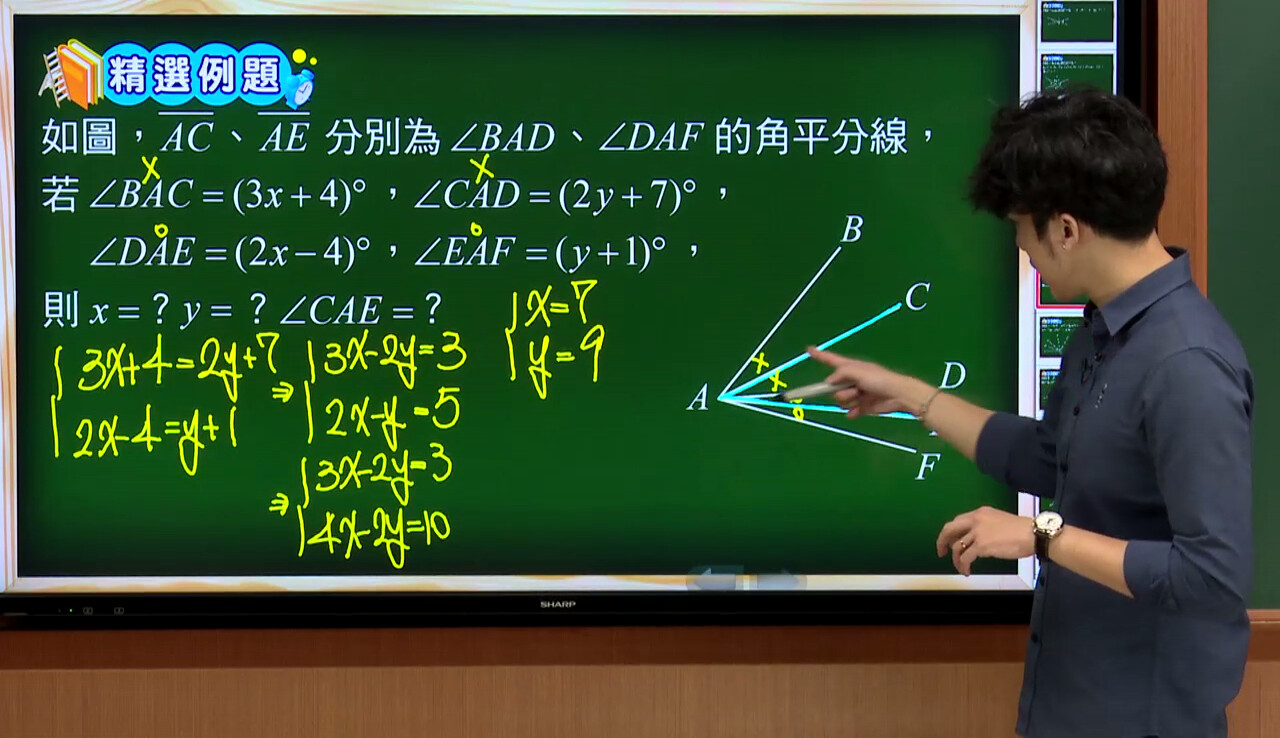 精選例題
如圖，AC、AE 分別為 ∠BAD、∠DAF 的角平分線，
x x
若 ∠BAC = (3x + 4)°，∠CAD = (2y + 7)°，
o o
∠DAE = (2x − 4)°，∠EAF = (y + 1)°，
則 x = ? y = ? ∠CAE = ?
{ 3x+4=2y+7
2x-4=y+1
⇒ { 3x-2y=3
2x-y=5
⇒ { 3x-2y=3
4x-2y=10
{ x=7
y=9
B
C
D
A
F
x
x
o
SHARP